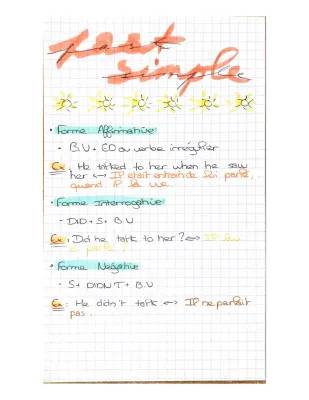 past
simple
• Forme Affirmative
- B.V + ED ou verbe irrégulier
Ex : He talked to her when he saw
her ↔ Il était entrain de lui parlé,
quand il la vue.
• Forme Interrogative
- DID + S + B.V
Ex : Did he talk to her ? ↔ Il lui
a parlé ?
• Forme Négative
- S + DIDN'T + B.V
Ex : He didn't talk ↔ Il ne parlait
pas.